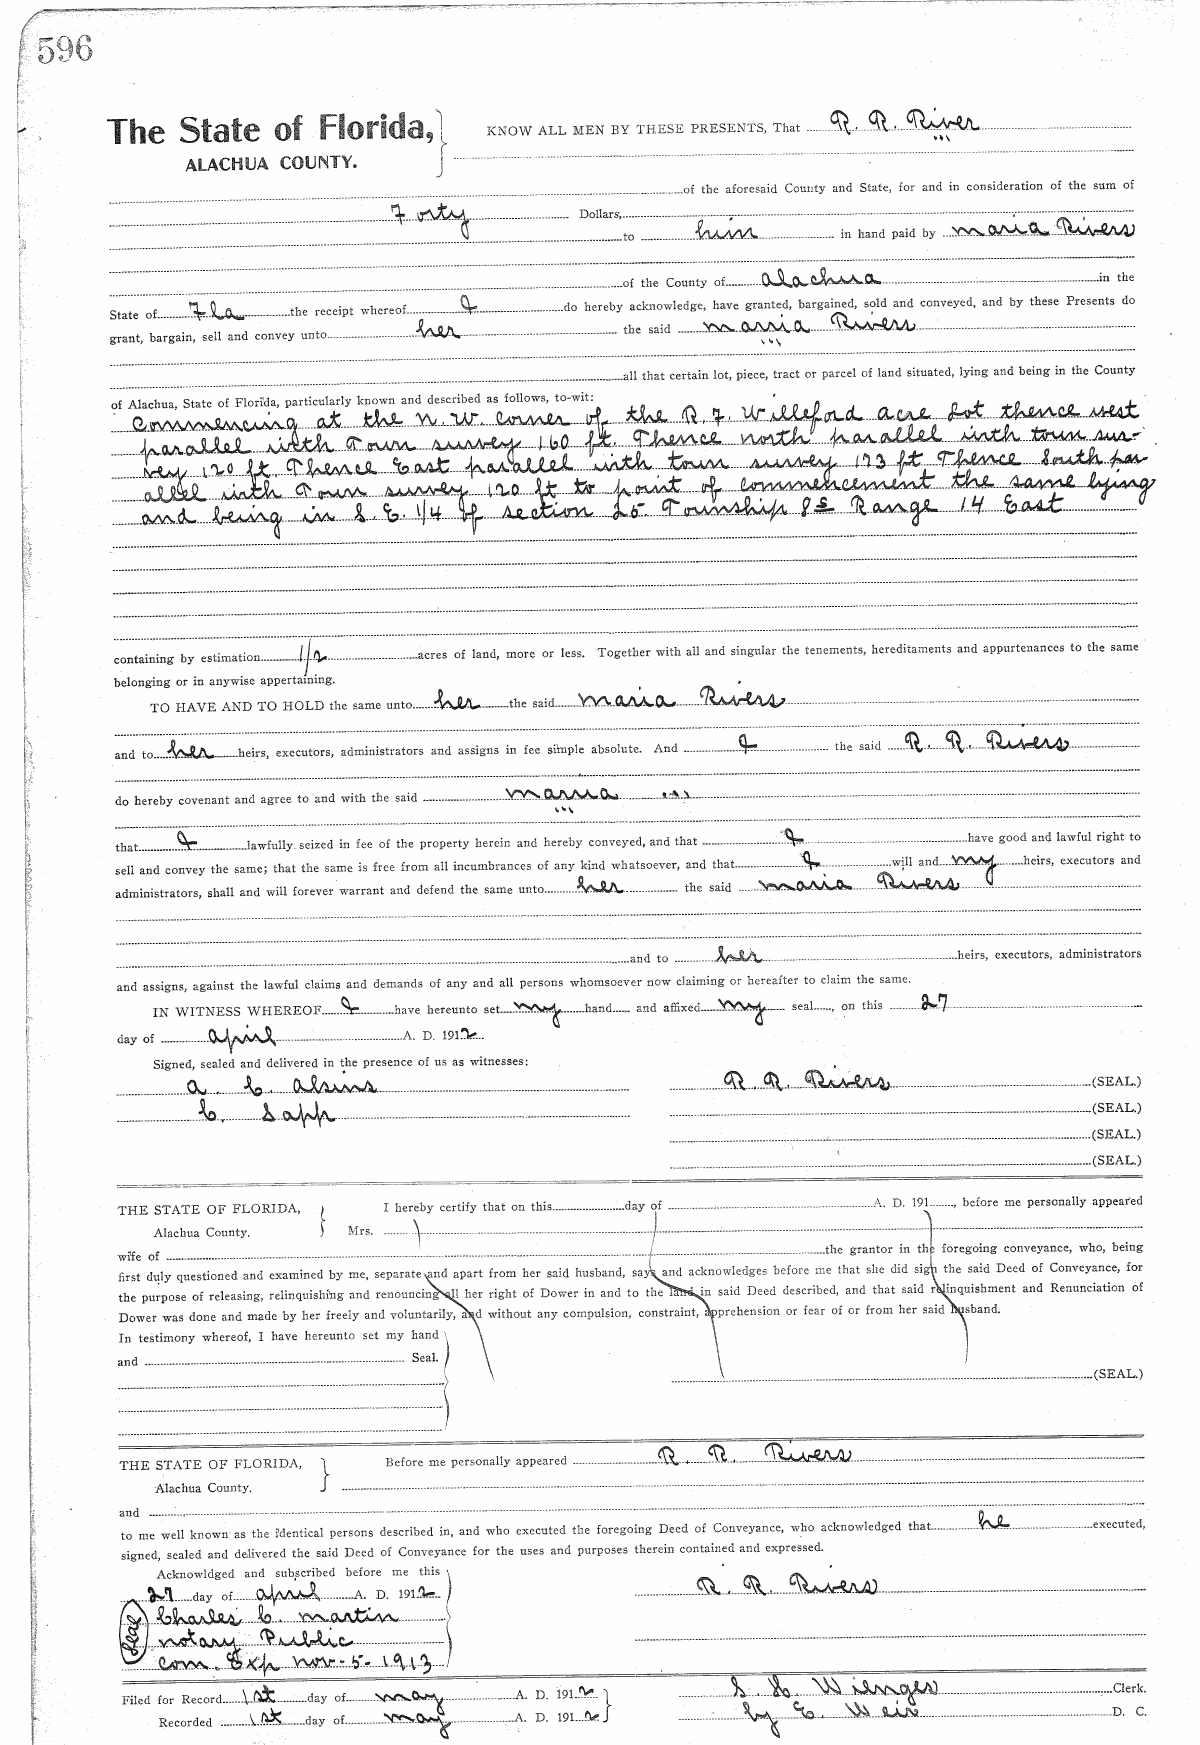 596
The State of Florida, KNOW ALL MEN BY THESE PRESENTS, That R. R. River
ALACHUA COUNTY.
of the aforesaid County and State, for and in consideration of the sum of
Forty Dollars,
to him in hand paid by Maria Rivers
of the County of Alachua in the
State of Fla the receipt whereof I do hereby acknowledge, have granted, bargained, sold and conveyed, and by these Presents do
grant, bargain, sell and convey unto her the said Marria Rivers
all that certain lot, piece, tract or parcel of land situated, lying and being in the County
of Alachua, State of Florida, particularly known and described as follows, to-wit:
Commencing at the N. W. corner of the R. F. Willeford acre Lot thence west
parallel with Town survey 160 ft. Thence north parallel with town sur-
vey 120 ft. Thence East parallel with town survey 173 ft Thence South par
allel with Town survey 120 ft to point of commencement the same lying
and being in S. E. 1/4 of section 25 Township 8 S Range 14 East
containing by estimation 1/2 acres of land, more or less. Together with all and singular the tenements, hereditaments and appurtenances to the same
belonging or in anywise appertaining.
TO HAVE AND TO HOLD the same unto her the said Maria Rivers
and to her heirs, executors, administrators and assigns in fee simple absolute. And I the said R. R. Rivers
do hereby covenant and agree to and with the said Marria
that I lawfully seized in fee of the property herein and hereby conveyed, and that I have good and lawful right to
sell and convey the same; that the same is free from all incumbrances of any kind whatsoever, and that I will and my heirs, executors and
administrators, shall and will forever warrant and defend the same unto her the said Maria Rivers
and to her heirs, executors, administrators
and assigns, against the lawful claims and demands of any and all persons whomsoever now claiming or hereafter to claim the same.
IN WITNESS WHEREOF I have hereunto set my hand and affixed my seal, on this 27
day of April A. D. 1912
Signed, sealed and delivered in the presence of us as witnesses:
A. C. Alsins R. R. Rivers (SEAL.)
C. Sapp (SEAL.)
(SEAL.)
(SEAL.)
THE STATE OF FLORIDA, I hereby certify that on this day of A. D. 191 , before me personally appeared
Alachua County. Mrs.
wife of the grantor in the foregoing conveyance, who, being
first duly questioned and examined by me, separate and apart from her said husband, says and acknowledges before me that she did sign the said Deed of Conveyance, for
the purpose of releasing, relinquishing and renouncing all her right of Dower in and to the land in said Deed described, and that said relinquishment and Renunciation of
Dower was done and made by her freely and voluntarily, and without any compulsion, constraint, apprehension or fear of or from her said husband.
In testimony whereof, I have hereunto set my hand
and Seal.
(SEAL.)
THE STATE OF FLORIDA, Before me personally appeared R. R. Rivers
Alachua County.
and
to me well known as the identical persons described in, and who executed the foregoing Deed of Conveyance, who acknowledged that he executed,
signed, sealed and delivered the said Deed of Conveyance for the uses and purposes therein contained and expressed.
Acknowldged and subscribed before me this
27 day of April A. D. 1912 R. R. Rivers
Seal Charles C. Martin
Notary Public
Com. Exp Nov-5-1913
Filed for Record 1st day of May A. D. 1912 S. H. Wienges Clerk.
Recorded 1st day of May A. D. 1912 by E. Weir D. C.